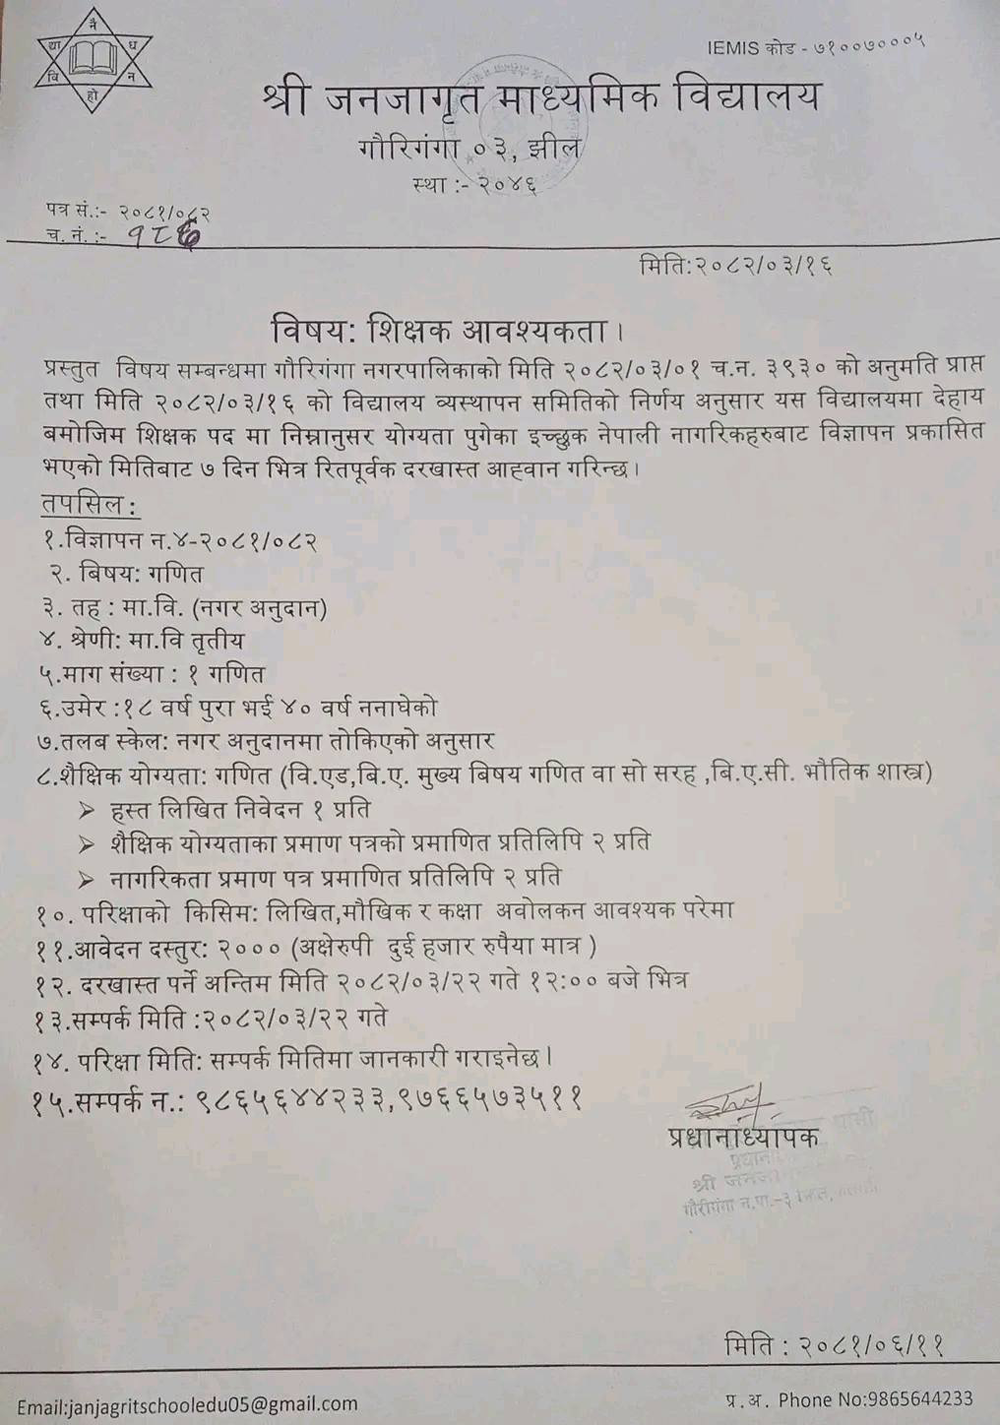 नै
या ध
वि न
हो
IEMIS कोड - ७१००७०००५
श्री जनजागृत माध्यमिक विद्यालय
गौरिगंगा ०३, झील
स्था :- २०४६
पत्र सं.:- २०८१/०८२
च. नं. :- १८६
मिति:२०८२/०३/१६
विषय: शिक्षक आवश्यकता ।
प्रस्तुत विषय सम्बन्धमा गौरिगंगा नगरपालिकाको मिति २०८२/०३/०१ च.न. ३९३० को अनुमति प्राप्त
तथा मिति २०८२/०३/१६ को विद्यालय व्यस्थापन समितिको निर्णय अनुसार यस विद्यालयमा देहाय
बमोजिम शिक्षक पद मा निम्नानुसर योग्यता पुगेका इच्छुक नेपाली नागरिकहरुबाट विज्ञापन प्रकासित
भएको मितिबाट ७ दिन भित्र रितपूर्वक दरखास्त आह्वान गरिन्छ ।
तपसिल :
१.विज्ञापन न.४-२०८१/०८२
२. बिषय: गणित
३. तह : मा.वि. (नगर अनुदान)
४. श्रेणी: मा.वि तृतीय
५.माग संख्या : १ गणित
६.उमेर :१८ वर्ष पुरा भई ४० वर्ष ननाघेको
७.तलब स्केल: नगर अनुदानमा तोकिएको अनुसार
८.शैक्षिक योग्यता: गणित (वि.एड,बि.ए. मुख्य बिषय गणित वा सो सरह ,बि.ए.सी. भौतिक शास्त्र)
➢ हस्त लिखित निवेदन १ प्रति
➢ शैक्षिक योग्यताका प्रमाण पत्रको प्रमाणित प्रतिलिपि २ प्रति
➢ नागरिकता प्रमाण पत्र प्रमाणित प्रतिलिपि २ प्रति
१०. परिक्षाको किसिम: लिखित,मौखिक र कक्षा अवोलकन आवश्यक परेमा
११.आवेदन दस्तुर: २००० (अक्षेरुपी दुई हजार रुपैया मात्र )
१२. दरखास्त पर्ने अन्तिम मिति २०८२/०३/२२ गते १२:०० बजे भित्र
१३.सम्पर्क मिति :२०८२/०३/२२ गते
१४. परिक्षा मिति: सम्पर्क मितिमा जानकारी गराइनेछ ।
१५.सम्पर्क न.: ९८६५६४४२३३,९७६६५७३५११
प्रधानाध्यापक
श्री
गौरीगंगा न.पा.-३
मिति : २०८१/०६/११
Email:janjagritschooledu05@gmail.com
प्र.अ. Phone No:9865644233